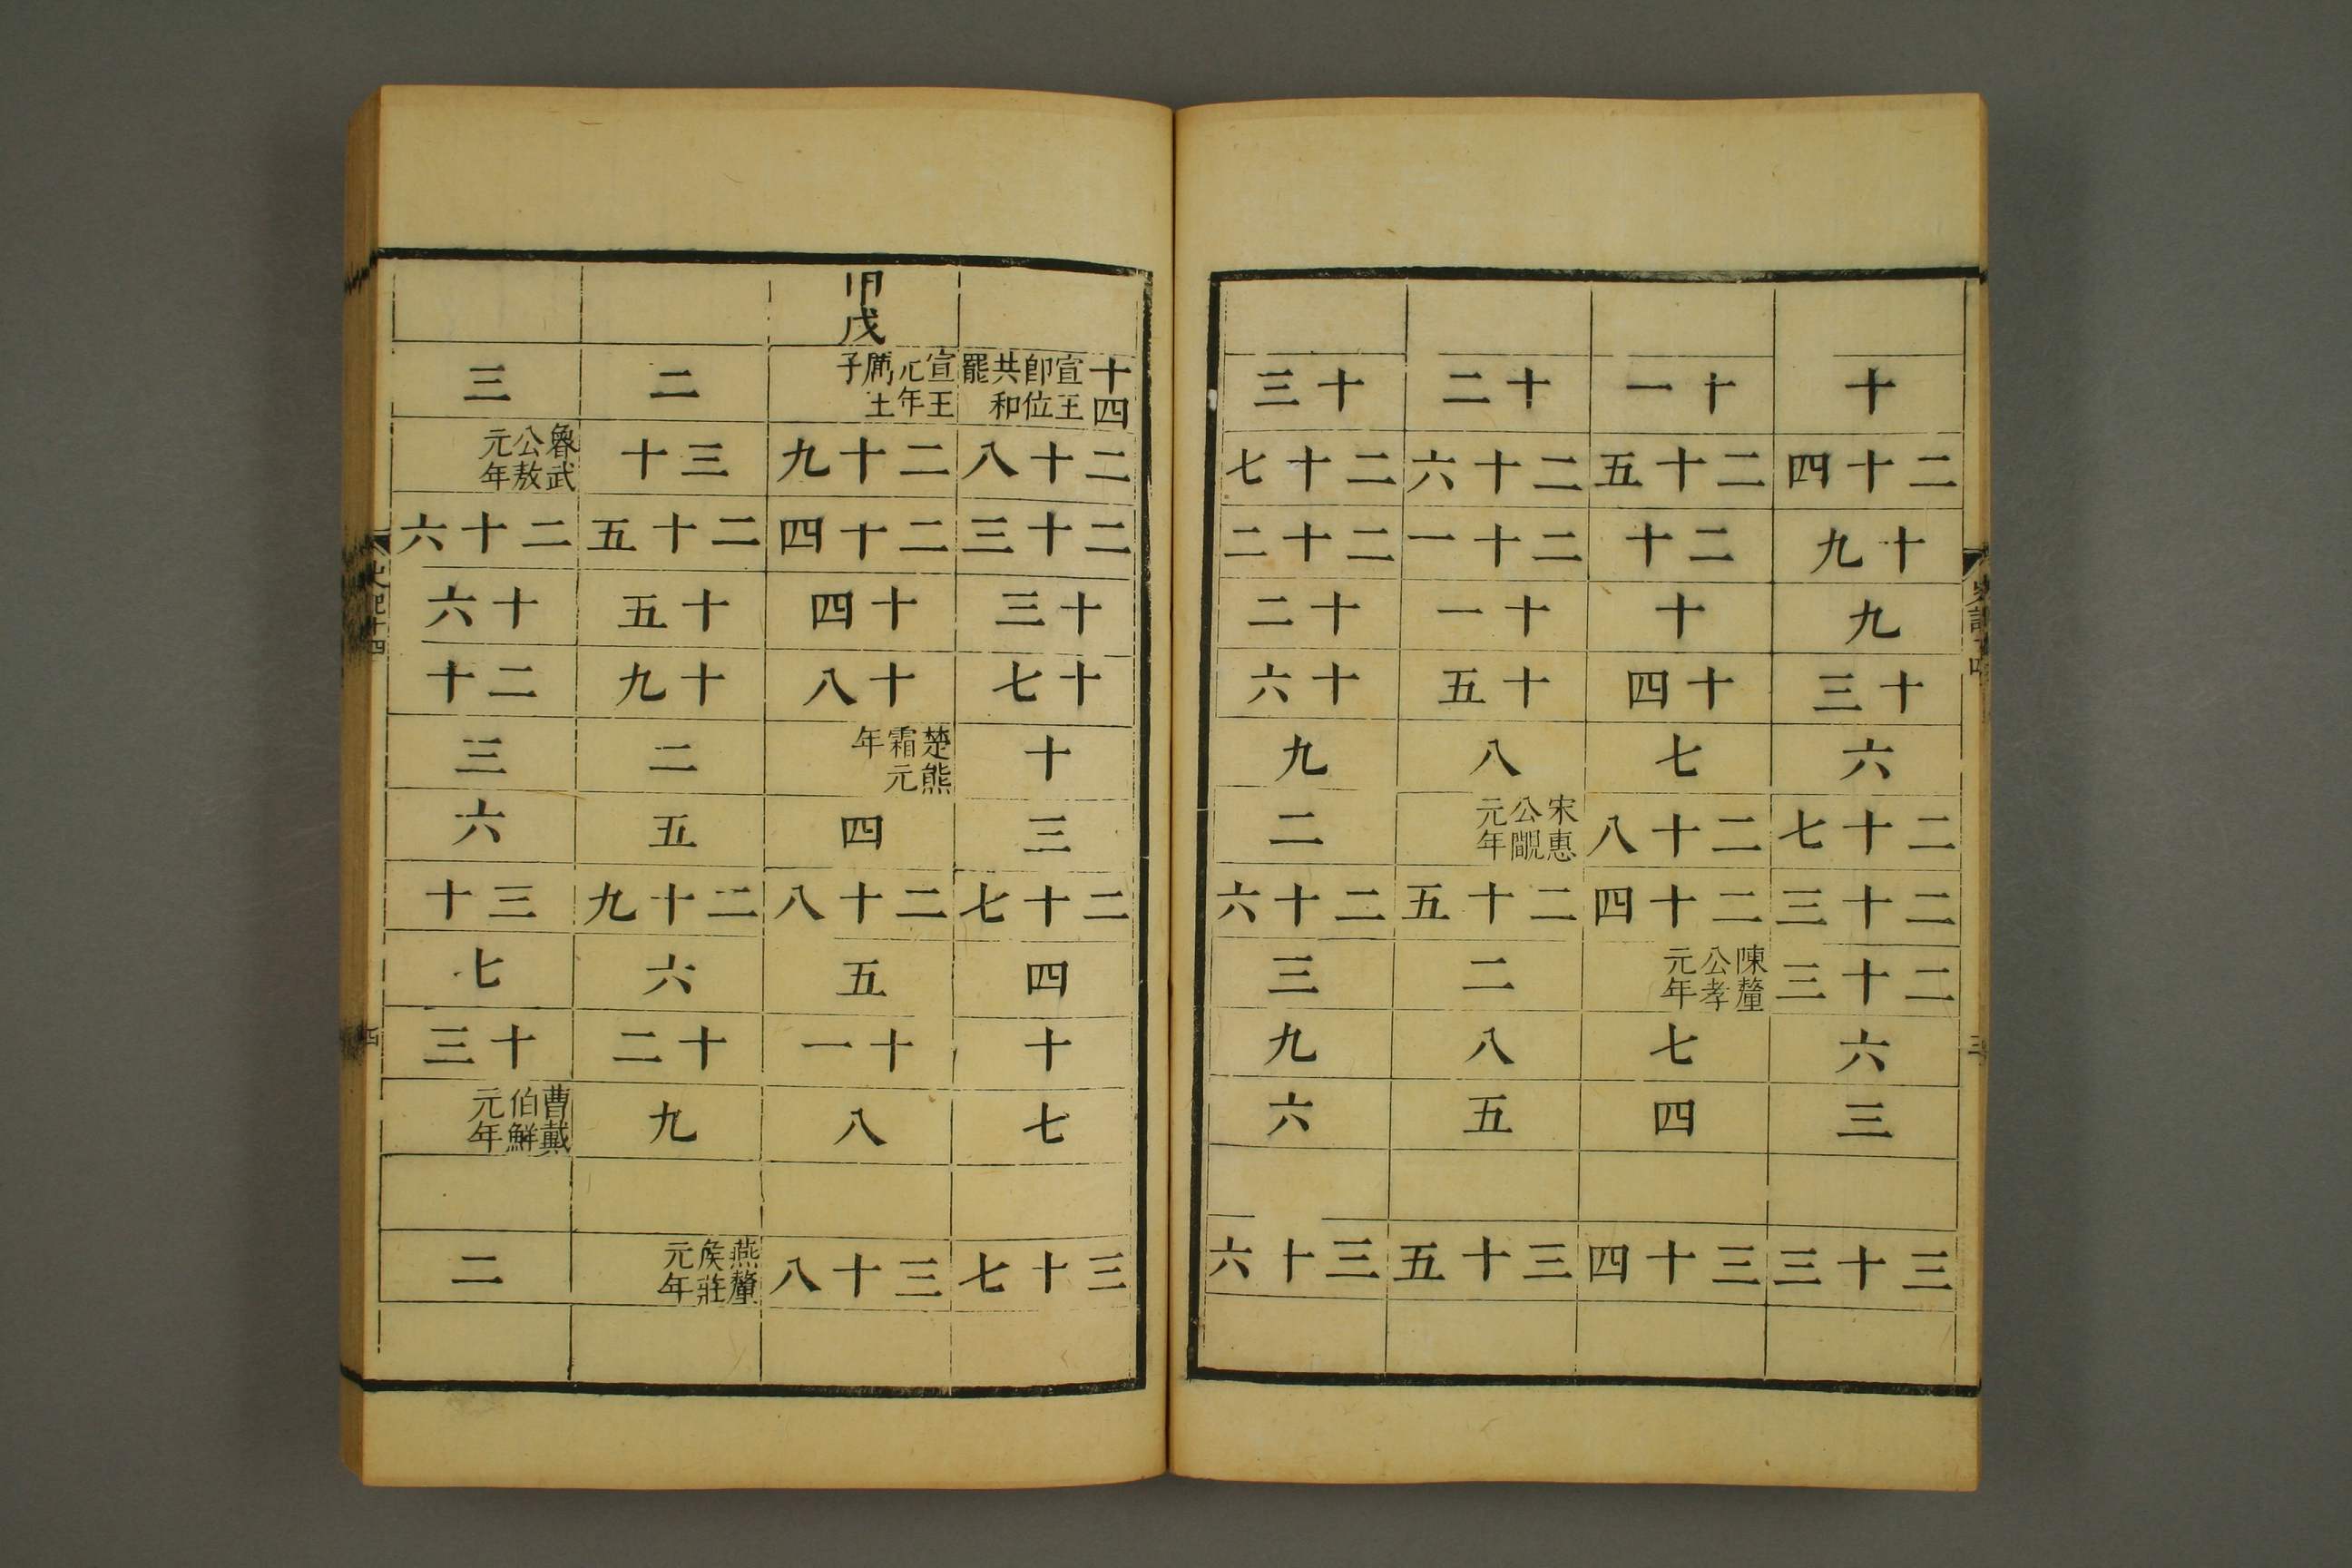 史記十四
三
十
二十四
十九
九
十三
六
二十七
二十三
二十三
六
三
三十三
十一
二十五
二十
十
十四
七
二十八
二十四
陳釐
公孝
元年
七
四
三十四
十二
二十六
二十一
十一
十五
八
宋惠
公覵
元年
二十五
二
八
五
三十五
十三
二十七
二十二
十二
十六
九
二
二十六
三
九
六
三十六
十四
宣王
卽位
共和
罷
二十八
二十三
十三
十七
十
三
二十七
四
十
七
三十七
甲戌
宣王
元年
厲王
子
二十九
二十四
十四
十八
楚熊
霜元
年
四
二十八
五
十一
八
三十八
二
三十
二十五
十五
十九
二
五
二十九
六
十二
九
燕釐
矦莊
元年
三
魯武
公敖
元年
二十六
十六
二十
三
六
三十
七
十三
曹戴
伯鮮
元年
二
史記十四
四